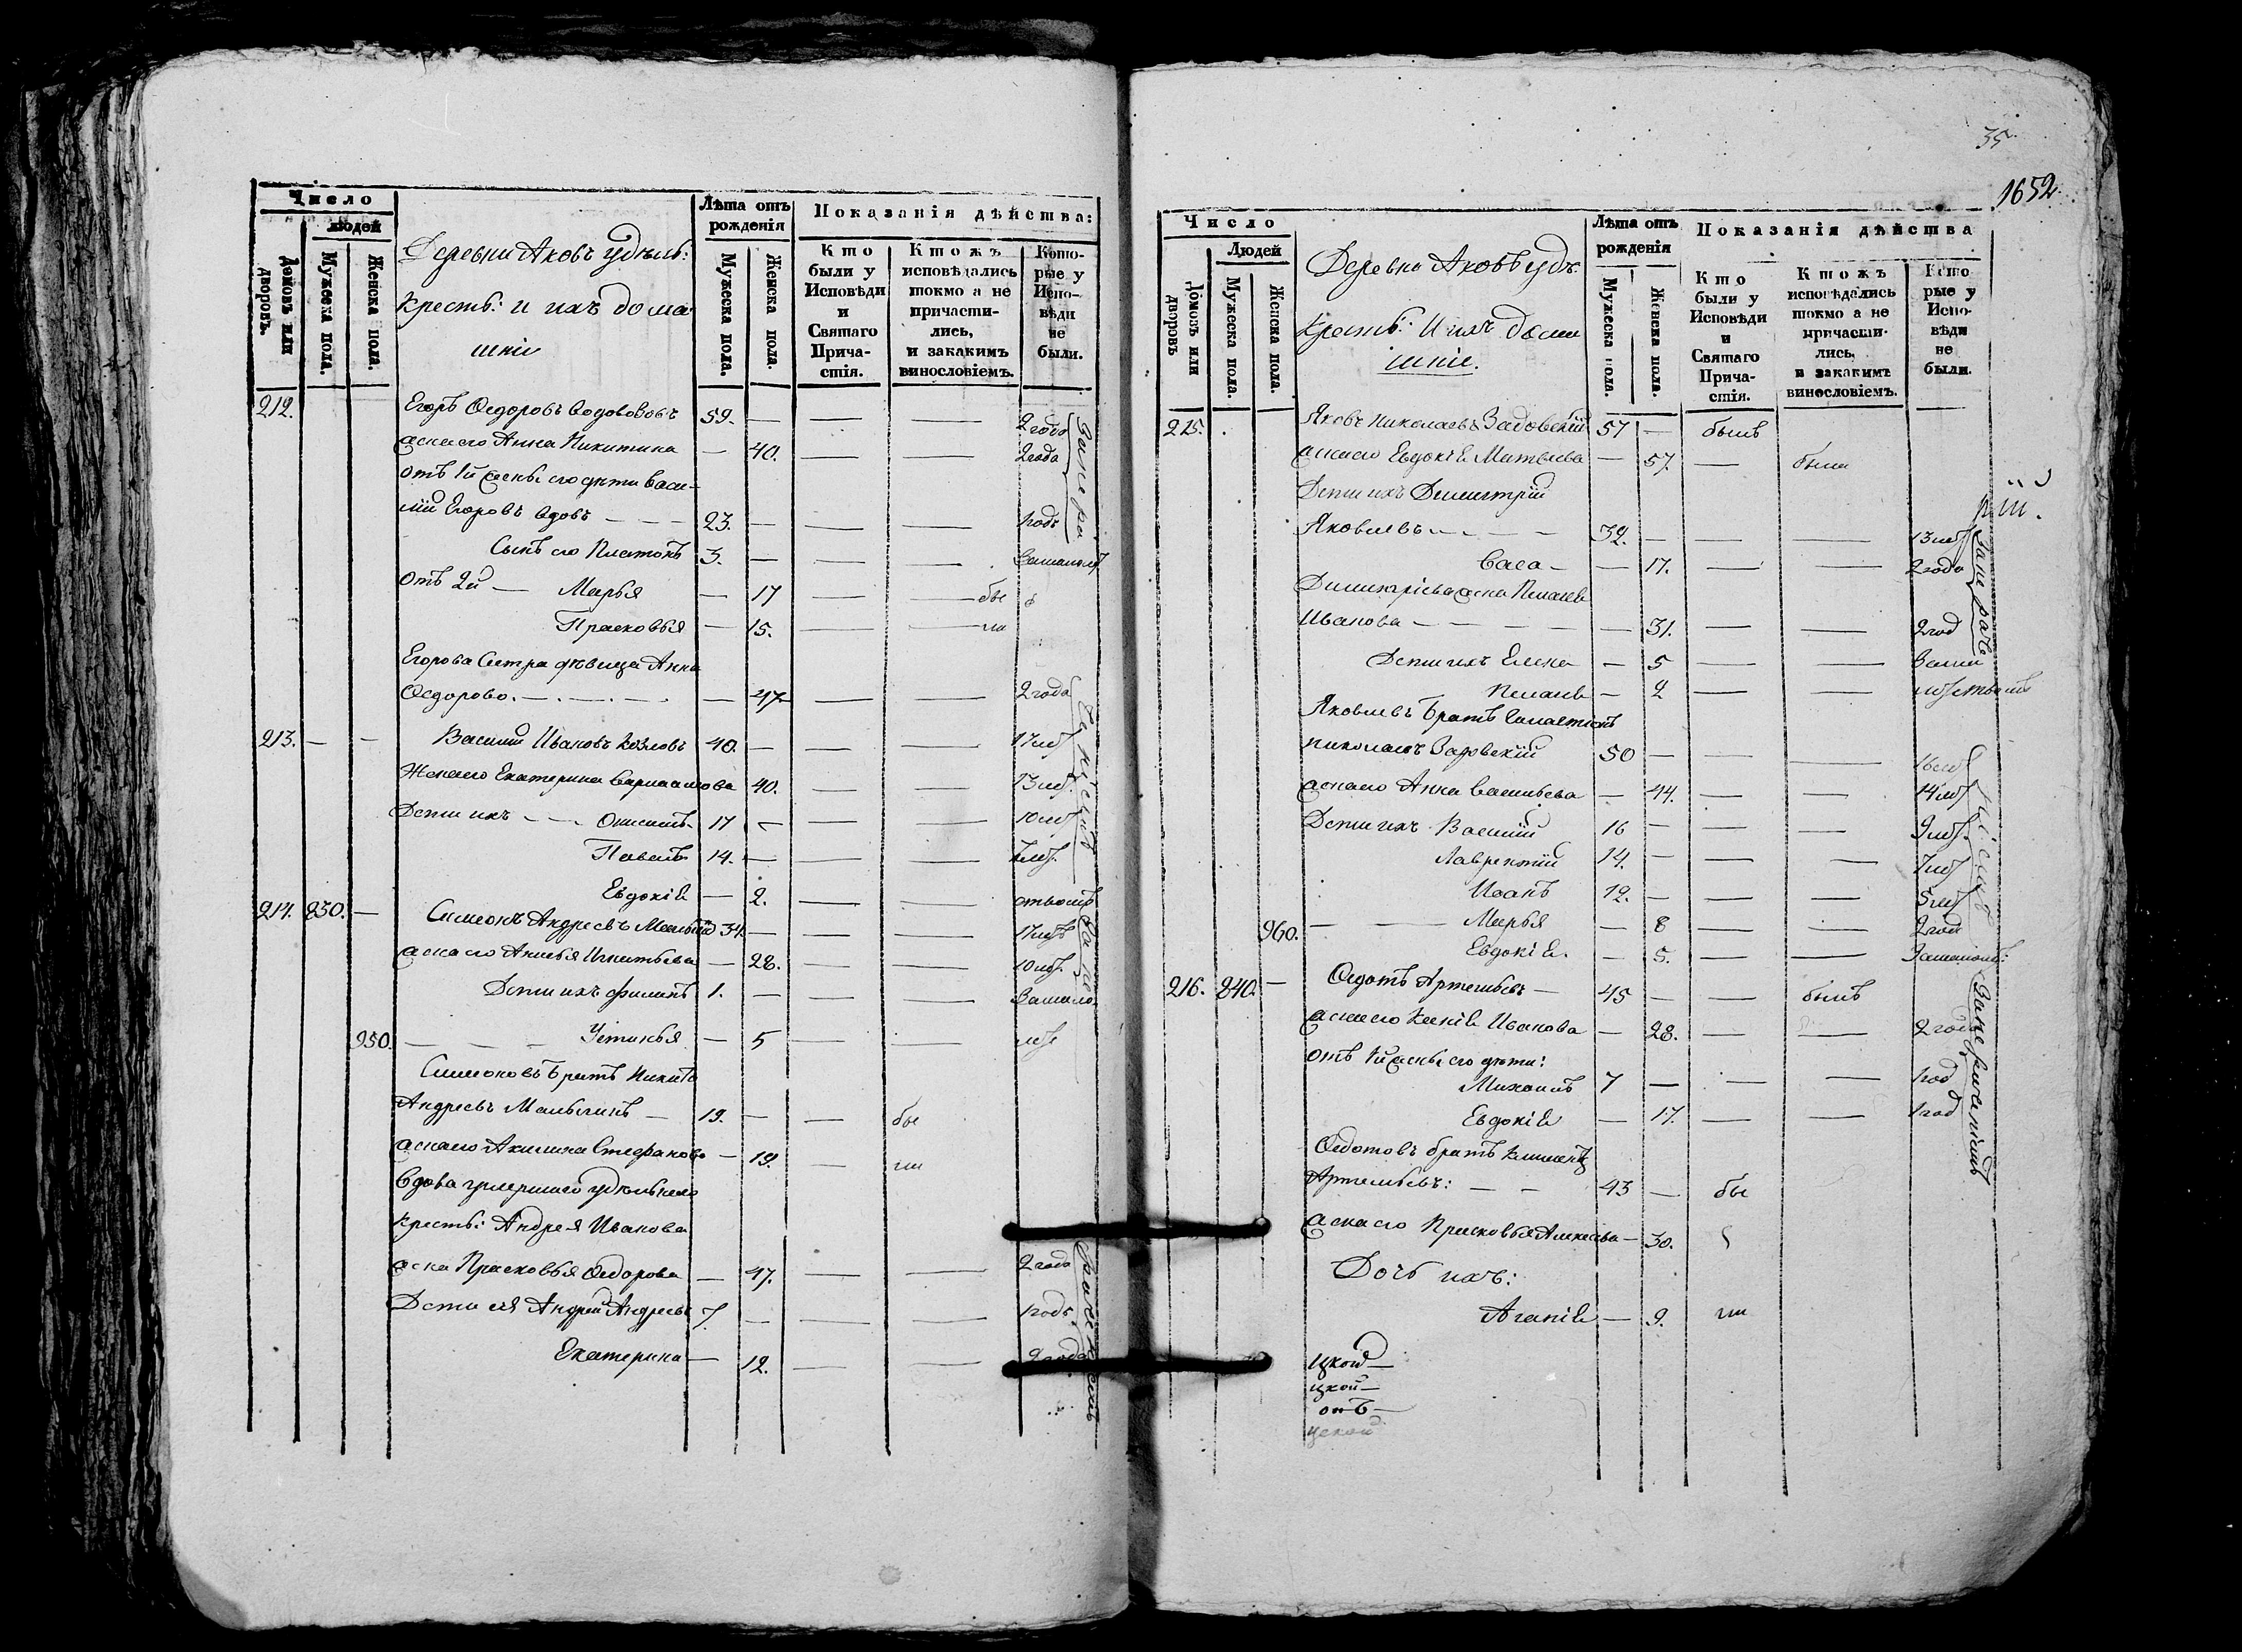 Число
людей
Домовъ или дворовъ.
Мужеска пола.
Женска пола.
Деревни Аковъ удѣль:
крестьꙶ: и ихъ дома
шніи
Лѣта отъ рожденія
Мужеска пола.
Женска пола.
Показанія дѣйства:
Кто были у Исповѣди и Святаго Причастія.
Ктожъ исповѣдались токмо а не причастились, и закакимъ винословіемъ.
Которые у Исповѣди не были.
212. Егоръ Ѳедоровъ 59. — — — 2 года
жена его Анна Никитина — 40. — — 2 года
отъ 1й жены его дѣти Васи-
лій Егоровъ вдовъ — — — 23. — — — 1 годъ
Сынъ его Платонъ 3. — — —
отъ 2й — Марья — 17 — — бы
Прасковья — 15. — — ли
Егорова сестра дѣвица Анна
Ѳедорова — 47 — — 2 года
213. — — Василій Ивановъ Козловъ 40. — — — 17 лѣт
Жена его Екатерина Варлаамова 40. — — 13 лѣт.
Дѣти ихъ — — Онисимъ 17 — — — 10 лѣт
Павелъ 14. — — — 7 лѣт.
Евдокія — 2. — —
214. 830. — Симеонъ Андреевъ 34 — — — 17 лѣтъ
жена его Анисья Игнатьева — 28. — — 10 лѣт.
Дѣти ихъ Филипъ 1. — — —
950. — — — Устинья — 5 — —
Симеоновъ братъ Никита
Андреевъ 19. — — бы
жена его Акилина Стефанова — 19. — ли
Вдова умершаго удѣльнаго
крестьꙶ: Андрея Иванова
жена Прасковья Ѳедорова — 47. — — 2 года
Дѣти ея Андрей Андреевъ 7. — — — 1 годъ
Екатерина — 12. — — 2 года
35.
1652.
Число
Людей
Домовъ или дворовъ
Мужеска пола.
Женска пола.
Деревни Аковъ удѣ:
крестьꙶ: и ихъ дома
шніе.
Лѣта отъ рожденія
Мужеска пола.
Женска пола.
Показанія дѣйства
Кто были у Исповѣди и Святаго Причастія.
Ктожъ исповѣдались токмо а не причастились, и закакимъ винословіемъ.
Которые у Исповѣди не были.
215. Яковъ Николаевъ Задовскій 57 — былъ
жена его Евдокія Матвѣева — 57. — была
Дѣти ихъ Димитрій
Яковлевъ — — — — 32. — — — 13 лѣт
Васа — — 17. — — 2 года
Димитріева жена Пелагея
Иванова — — — — — 31. — — 2 год
Дѣти ихъ Елена — 5 — —
Пелагея — 2 — —
Яковлевъ братъ
Николаевъ Задовскій 50 — — — 16 лѣт
жена его Анна Васильева — 44. — — 14 лѣт
Дѣти ихъ Василій 16 — — — 9 лѣт.
Лаврентій 14. — — — 7 лѣт
Иванъ 12. — — — 5 лѣт
960. — — — Марья — 8 — — 2 года
Евдокія. — 5. — —
216. 840. — Ѳедотъ Артемьевъ — 45 — — былъ
жена его Ксенія Иванова — 28. — — 2 года
отъ 1й жены его дѣти:
Михаилъ 7 — — — 1 год
Евдокія — 17. — — 1 год
Ѳедотовъ братъ Климентъ
Артемьевъ: — — 43 — бы
жена его Прасковья Алексѣева — 30.
Дочь ихъ:
Агапія — 9. ли
цкой —
цкой —
онъ —